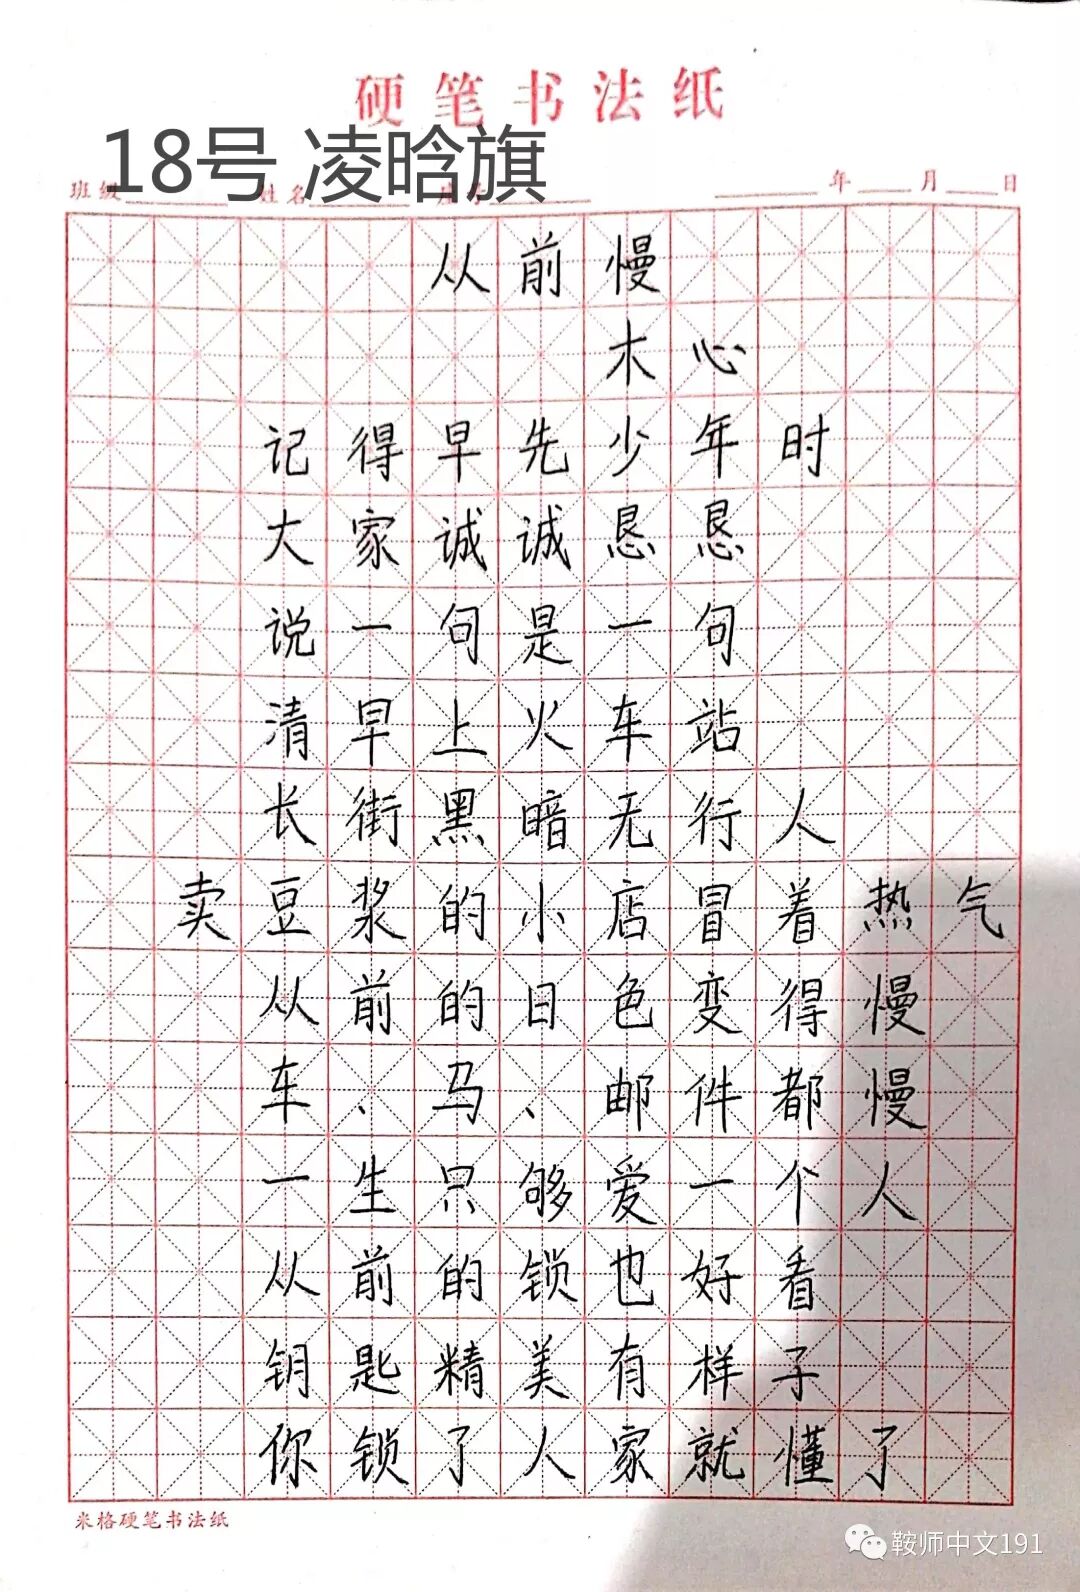 硬笔书法纸
18号 凌晗旗
班级 姓名 年 月 日
从前慢
木心
记得早先少年时
大家诚诚恳恳
说一句是一句
清早上火车站
长街黑暗无行人
卖豆浆的小店冒着热气
从前的日色变得慢
车、马、邮件都慢
一生只够爱一个人
从前的锁也好看
钥匙精美有样子
你锁了人家就懂了
米格硬笔书法纸
鞍师中文191